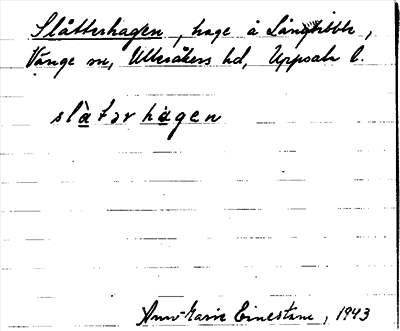 Slåtterhagen, hage å Långtibble,
Vänge sn, Ulleråkers hd, Uppsala l.
slàtər hàgen
Ann-Marie Einestam, 1943